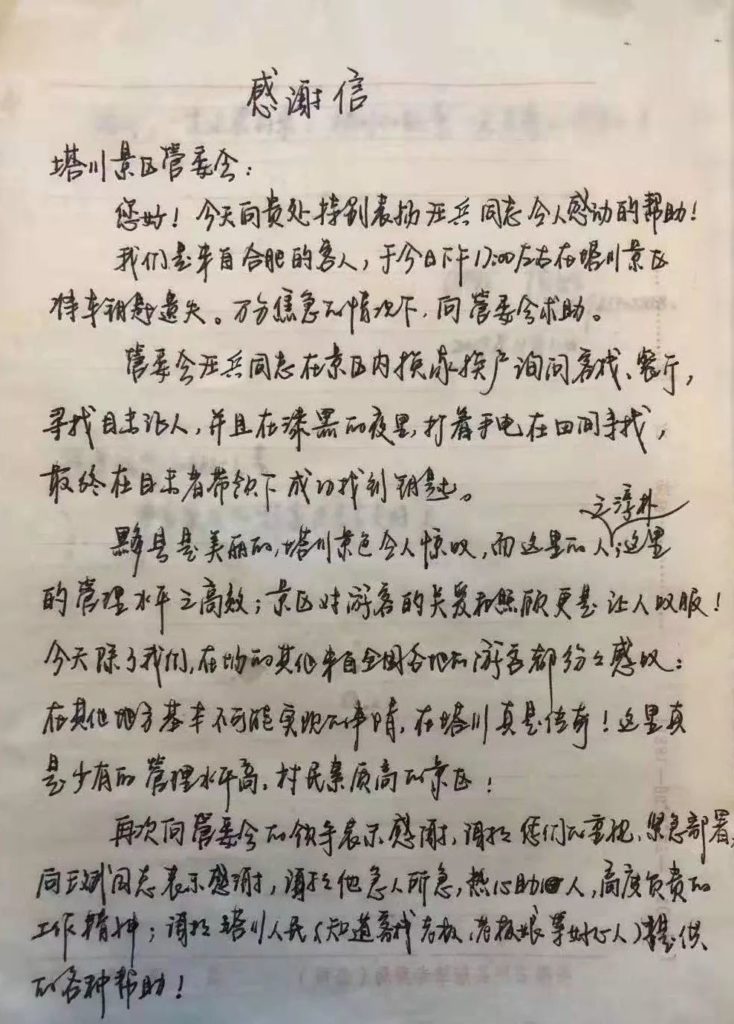 感谢信
塔川景区管委会：
您好！今天向贵处特别表扬汪兵同志令人感动的帮助！
我们是来自合肥的客人，于今日下午17:00左右在塔川景区
将车钥匙遗失。万分焦急的情况下，向管委会求助。
管委会汪兵同志在景区内挨家挨户询问客栈、餐厅，
寻找目击证人，并且在漆黑的夜里，打着手电在田间寻找，
最终在目击者带领下成功找到钥匙。
之淳朴
黟县是美丽的，塔川景色令人惊叹，而这里的人；这里
的管理水平之高效；景区对游客的关爱和照顾更是让人叹服！
今天除了我们，在场的其他来自全国各地的游客都纷々感叹：
在其他地方基本不可能实现的事情，在塔川真是传奇！这里真
是少有的管理水平高，村民素质高的景区！
再次向管委会的领导表示感谢，谢谢您们的重视，紧急部署，
向同志表示感谢，谢谢他急人所急，热心助人，高度负责的
工作精神；谢谢塔川人民（知道客栈老板、老板娘等好心人）提供
的各种帮助！